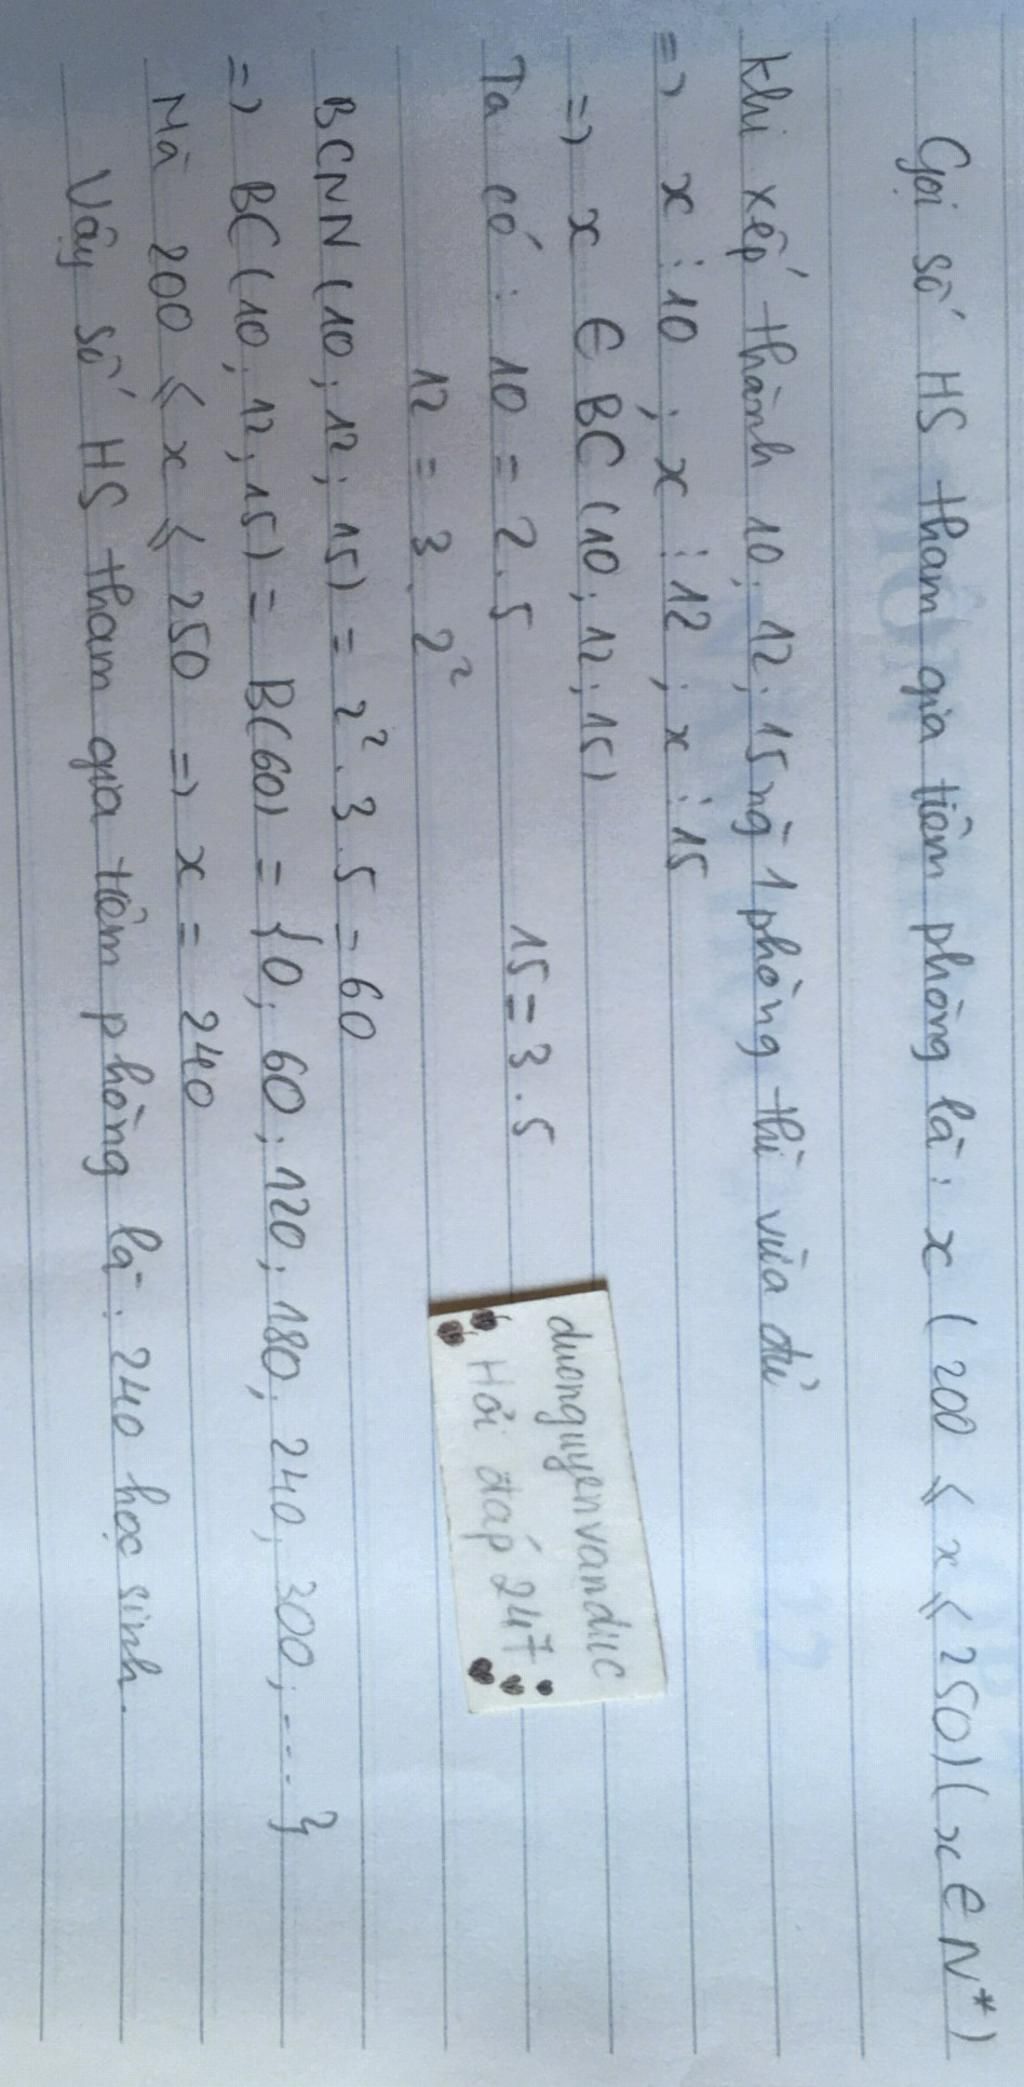 Gọi số HS tham gia tiêm phòng là: x (200 ≤ x ≤ 250) (x ∈ N*)
Khi xếp thành 10; 12; 15 ng 1 phòng thì vừa đủ
=> x ⋮ 10 ; x ⋮ 12 ; x ⋮ 15
=> x ∈ BC (10; 12; 15)
Ta có: 10 = 2.5 15 = 3.5
12 = 3.2²
BCNN (10; 12; 15) = 2².3.5 = 60
=> BC (10; 12; 15) = B(60) = {0; 60; 120; 180; 240; 300; ---}
Mà 200 ≤ x ≤ 250 => x = 240
Vậy số HS tham gia tiêm phòng là: 240 học sinh.
duonguyenvanduc
Hỏi đáp 247